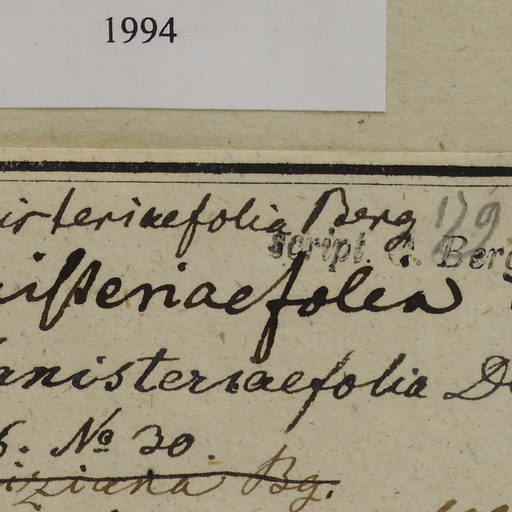 1994
isteriaefolia Berg 179
script. O. Berg
isteriaefolia
anisteriaefolia D
6. No 30.
iziana Bg.